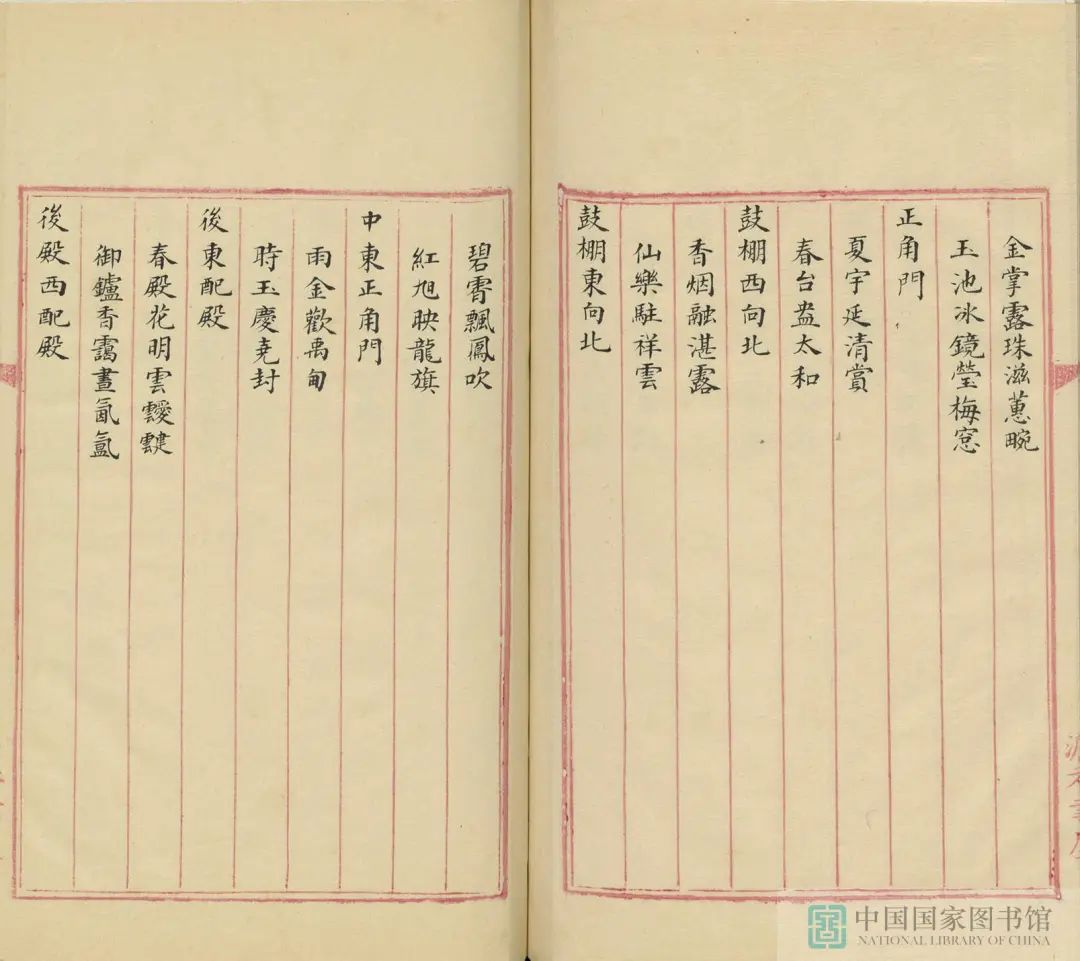 金掌露珠滋蕙畹
玉池冰鏡瑩梅窓
正角門
夏宇延清賞
春台盎太和
鼓棚西向北
香烟融湛露
仙樂駐祥雲
鼓棚東向北
碧霄飄鳳吹
紅旭映龍旗
中東正角門
雨金歡禹甸
時玉慶堯封
後東配殿
春殿花明雲靉靆
御鑪香靄晝氤氳
後殿西配殿
中国国家图书馆
NATIONAL LIBRARY OF CHINA